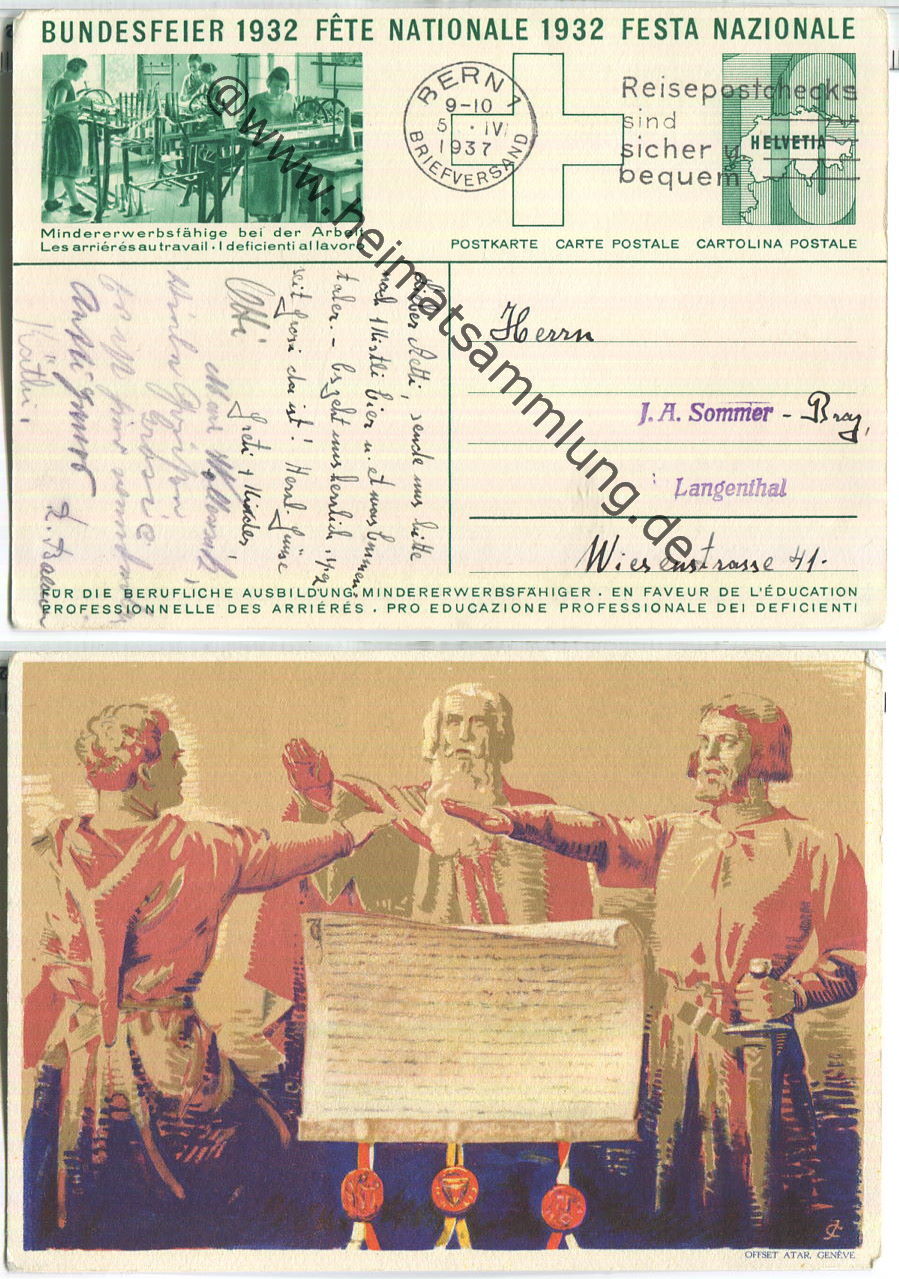 BUNDESFEIER 1932 FÊTE NATIONALE 1932 FESTA NAZIONALE
BERN 1
9-10
5. IV
1937
BRIEFVERSAND
Reisepostchecks
sind
sicher u
bequem
HELVETIA
10
Mindererwerbsfähige bei der Arbeit
Les arriérés au travail · I deficienti al lavoro
POSTKARTE CARTE POSTALE CARTOLINA POSTALE
Herrn
J. A. Sommer - Bray,
Langenthal
Wiesenstrasse 41.
Lieber Aetti, sende uns bitte
noch 1 Kistli bier u. etwas
taler. - Es geht uns herrlich
seit Grosi da ist! Herzl. Grüsse
Otti
Greti
Käthi
FÜR DIE BERUFLICHE AUSBILDUNG MINDERERWERBSFÄHIGER . EN FAVEUR DE L'ÉDUCATION
PROFESSIONNELLE DES ARRIÉRÉS . PRO EDUCAZIONE PROFESSIONALE DEI DEFICIENTI
@www.heimatsammlung.de
OFFSET ATAR, GENÈVE